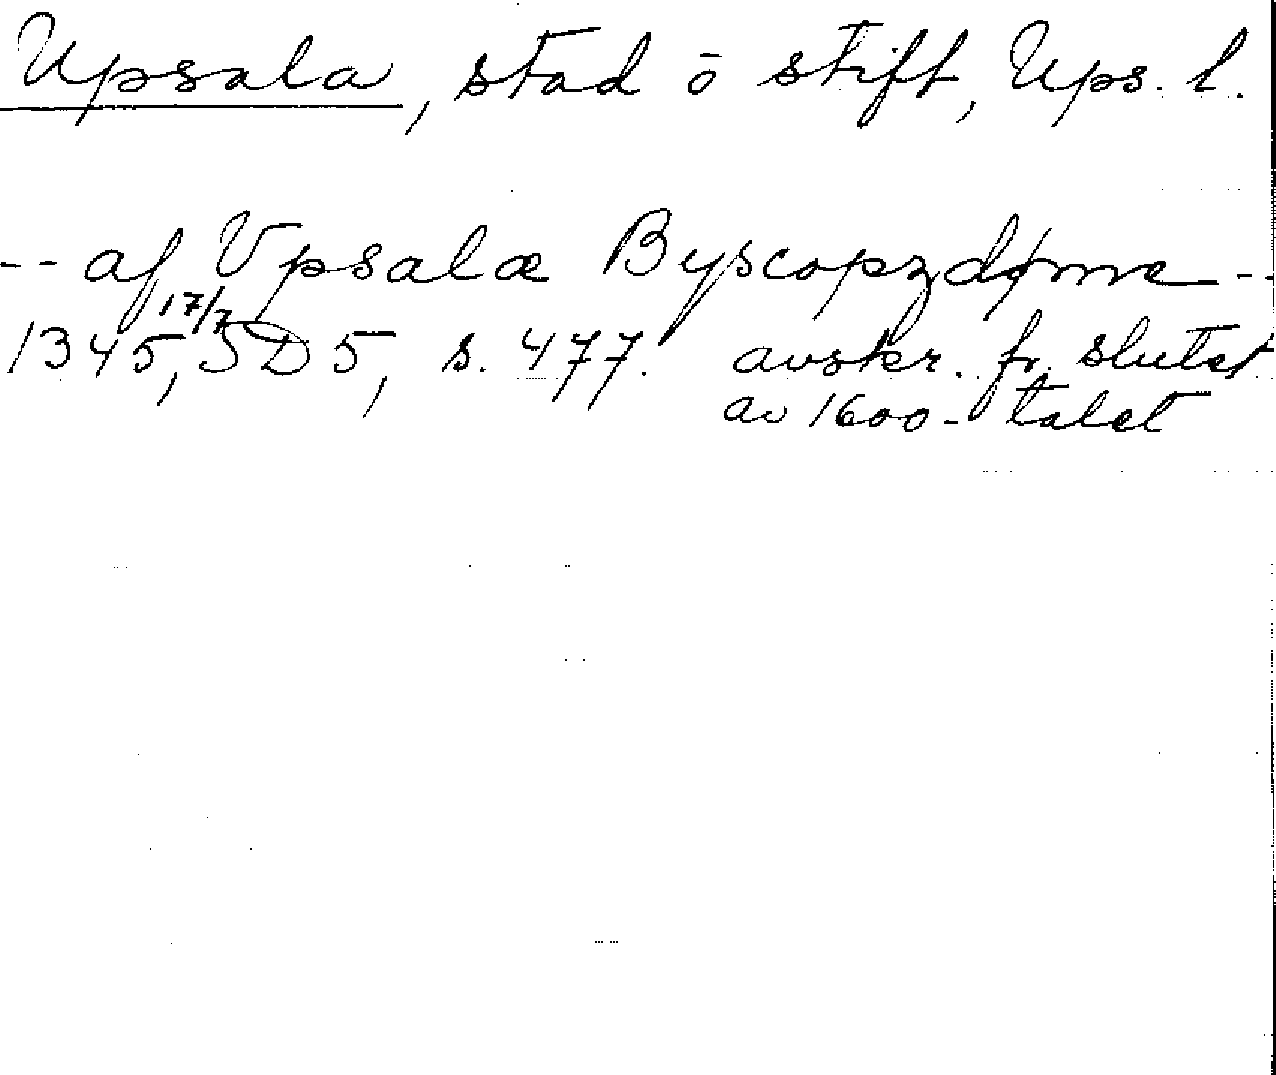 Upsala, stad o stift, Ups. l.
-- af Vpsalæ Byscopzdøme --
1345 17/7, SD 5, s. 477. avskr. fr. slutet
av 1600-talet